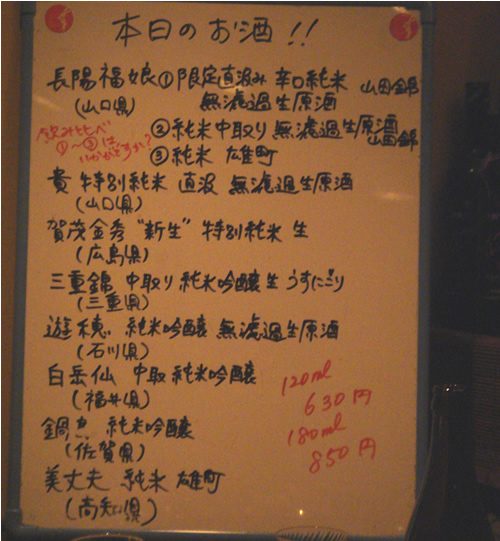 本日のお酒!!
長陽福娘①限定直汲み 辛口純米 山田錦
(山口県) 無濾過生原酒
②純米中取り 無濾過生原酒 山田錦
飲み比べ
①〜③は
いかがですか?
③純米 雄町
貴 特別純米 直汲 無濾過生原酒
(山口県)
賀茂金秀"新生"特別純米 生
(広島県)
三重錦 中取り 純米吟醸 生 うすにごり
(三重県)
遊穂 純米吟醸 無濾過生原酒
(石川県)
白岳仙 中取 純米吟醸
(福井県)
鍋島 純米吟醸
(佐賀県)
美丈夫 純米 雄町
(高知県)
120ml
630円
180ml
850円